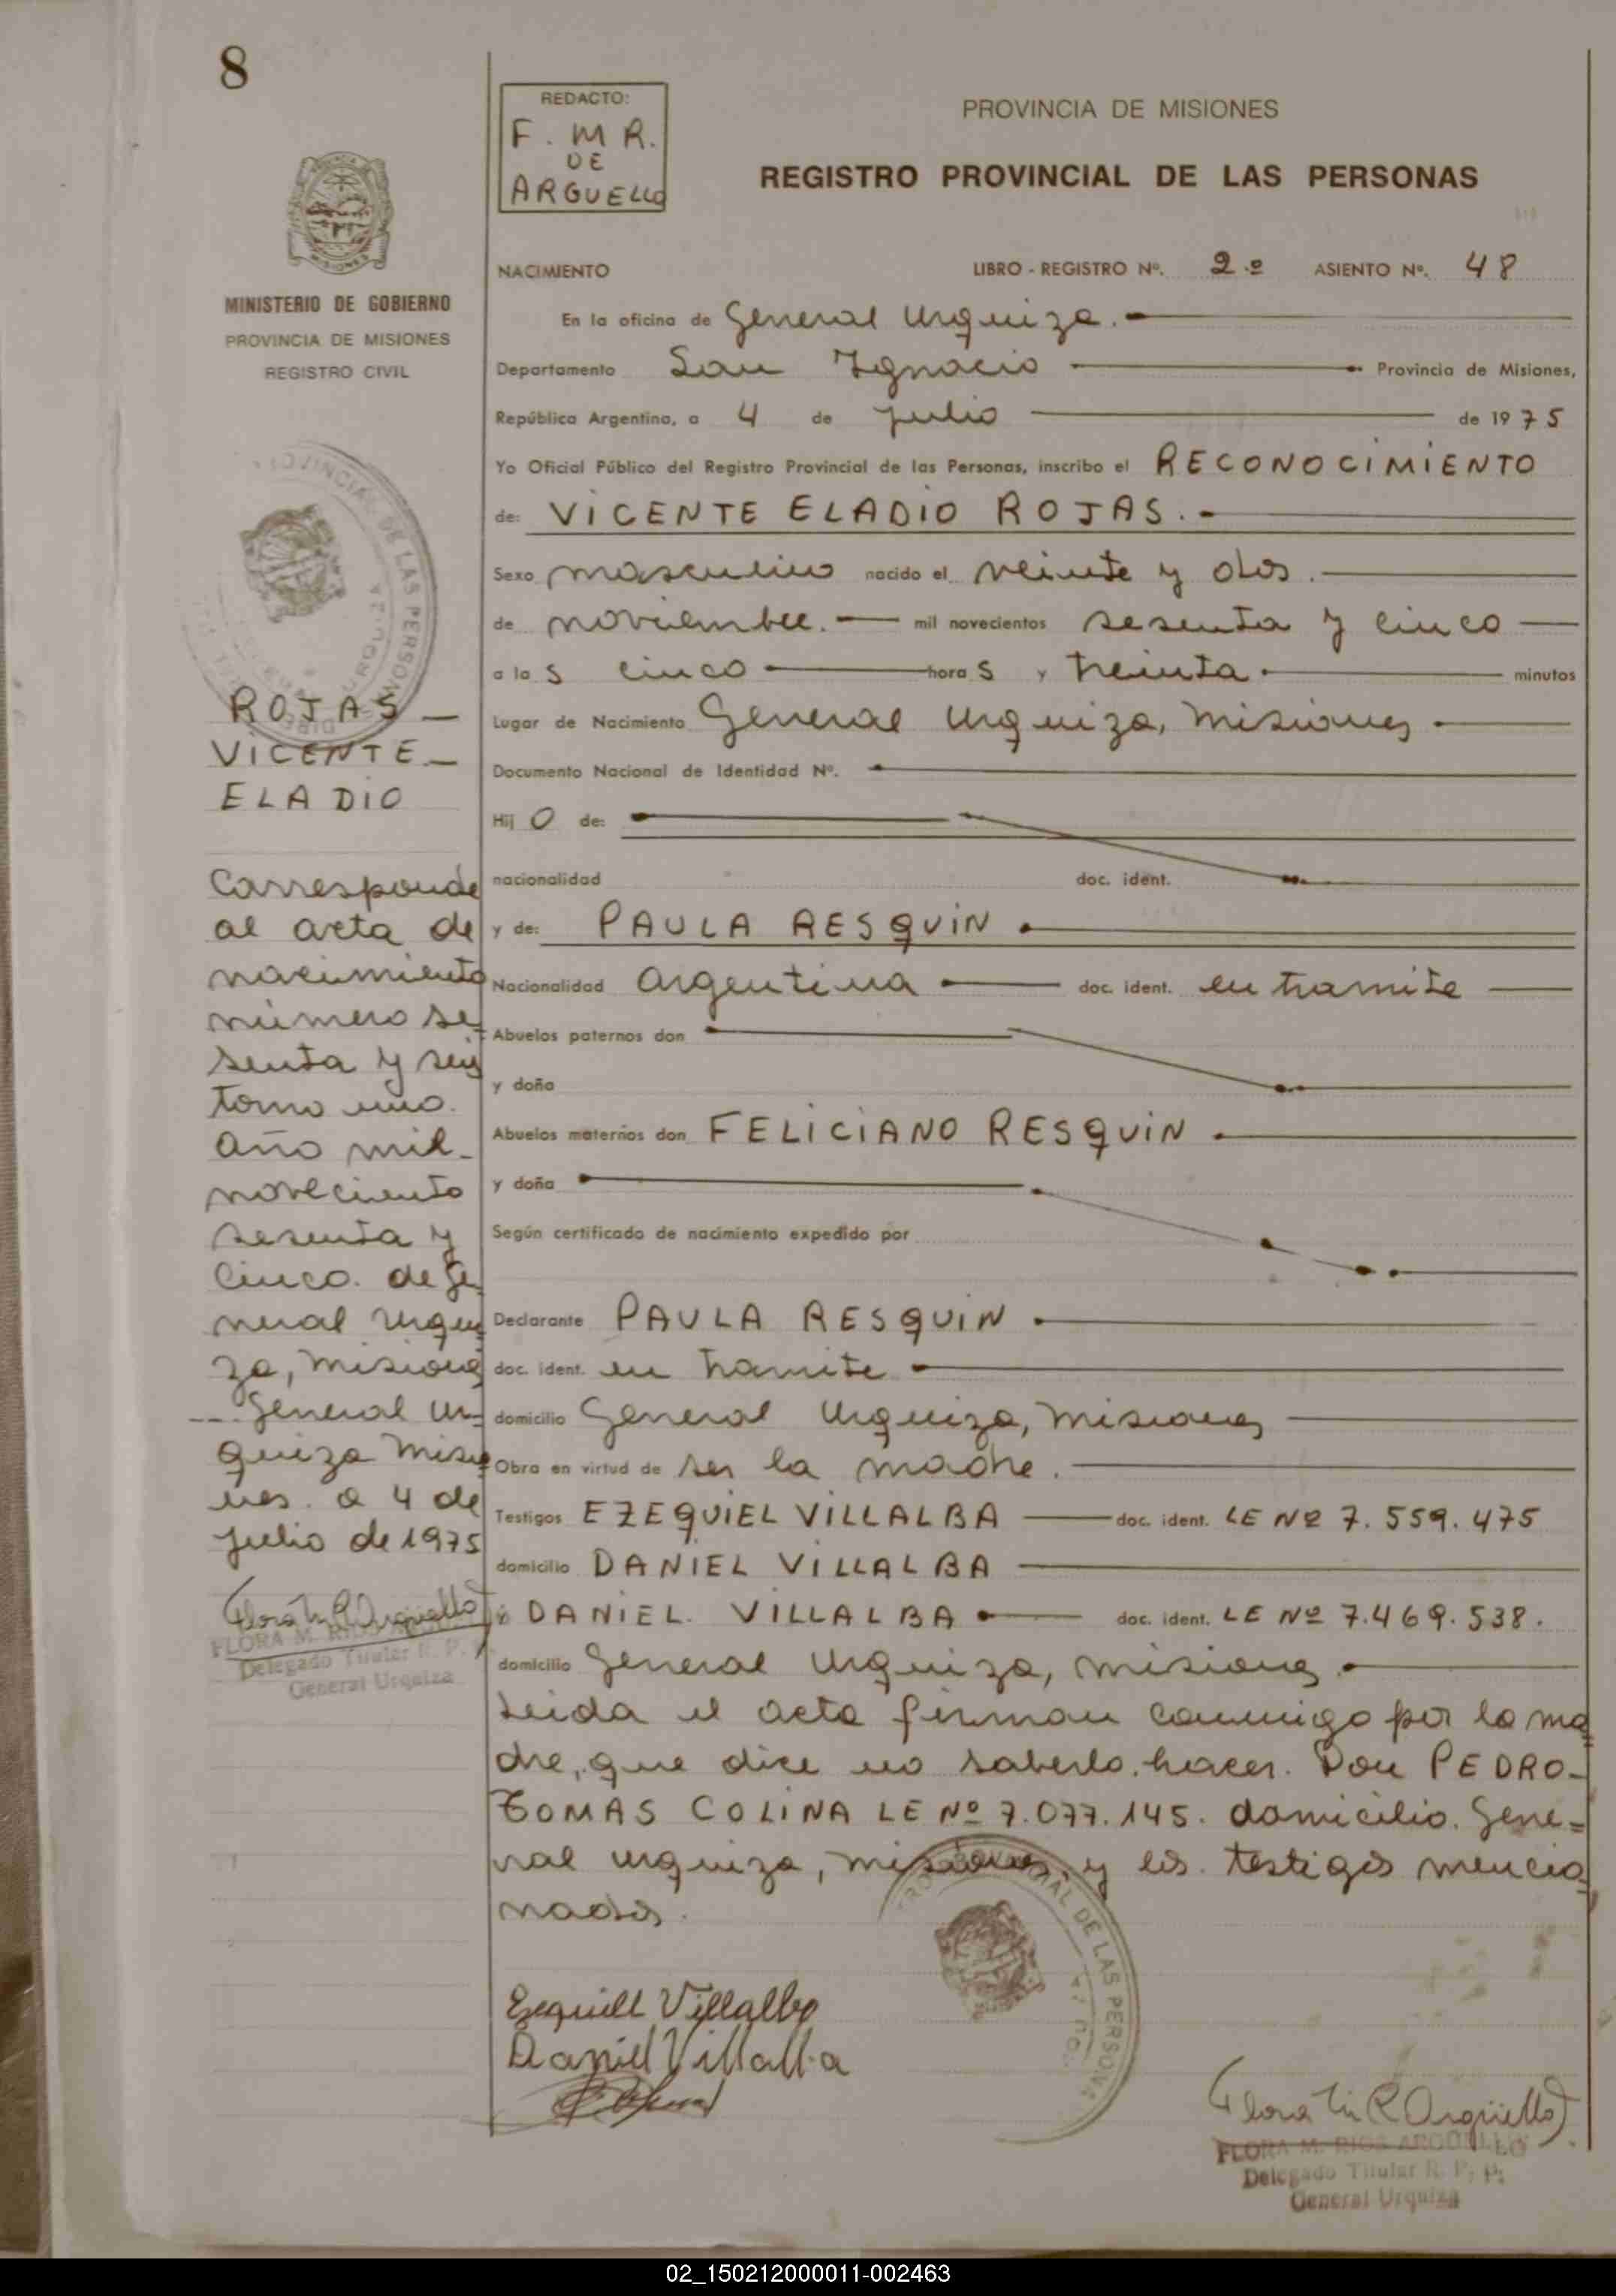 8
REDACTO:
F. M R.
DE
ARGUELLO
PROVINCIA DE MISIONES
REGISTRO PROVINCIAL DE LAS PERSONAS
MISIONES
MINISTERIO DE GOBIERNO
PROVINCIA DE MISIONES
REGISTRO CIVIL
NACIMIENTO LIBRO - REGISTRO Nº. 2.º ASIENTO Nº. 48
En la oficina de General Urquiza.
Departamento San Ignacio Provincia de Misiones,
República Argentina, a 4 de julio de 1975
Yo Oficial Público del Registro Provincial de las Personas, inscribo el RECONOCIMIENTO
de: VICENTE ELADIO ROJAS.
Sexo masculino nacido el veinte y dos.
de noviembre. mil novecientos sesenta y cinco
a las cinco horas y treinta. minutos
Lugar de Nacimiento General Urquiza, Misiones
Documento Nacional de Identidad Nº.
Hijo de:
nacionalidad doc. ident.
y de: PAULA RESQUIN
Nacionalidad Argentina doc. ident. en tramite
Abuelos paternos don
y doña
Abuelos maternos don FELICIANO RESQUIN
y doña
Según certificado de nacimiento expedido por
Declarante PAULA RESQUIN
doc. ident. en tramite
domicilio General Urquiza, Misiones
Obra en virtud de ser la madre.
Testigos EZEQUIEL VILLALBA doc. ident. LE Nº 7.559.475
domicilio DANIEL VILLALBA
y DANIEL. VILLALBA doc. ident. LE Nº 7.469.538.
domicilio General Urquiza, Misiones
Leida el acta firman conmigo por la ma
dre, que dice no saberlo hacer. Don PEDRO-
TOMAS COLINA LE Nº 7.077.145. domicilio. Gene=
ral Urquiza, Misiones, y los. testigos mencio
nados.
ROJAS
VICENTE
ELADIO
Corresponde
al acta de
nacimiento
número se
senta y seis
tomo uno.
Año mil
noveciento
sesenta y
cinco. de Ge
neral Urqui
za, Misiones
General Ur-
quiza Misio
nes. a 4 de
julio de 1975
Flora M R Argüello
FLORA M. RIOS ARGUELLO
Delegado Titular R. P. P.
General Urquiza
PROVINCIAL DE LAS PERSONAS
Ezequiel Villalba
Daniel Villalba
PROVINCIAL DE LAS PERSONAS
Flora M R Argüello
FLORA M. RIOS ARGUELLO
Delegado Titular R. P. P.
General Urquiza
02_150212000011-002463